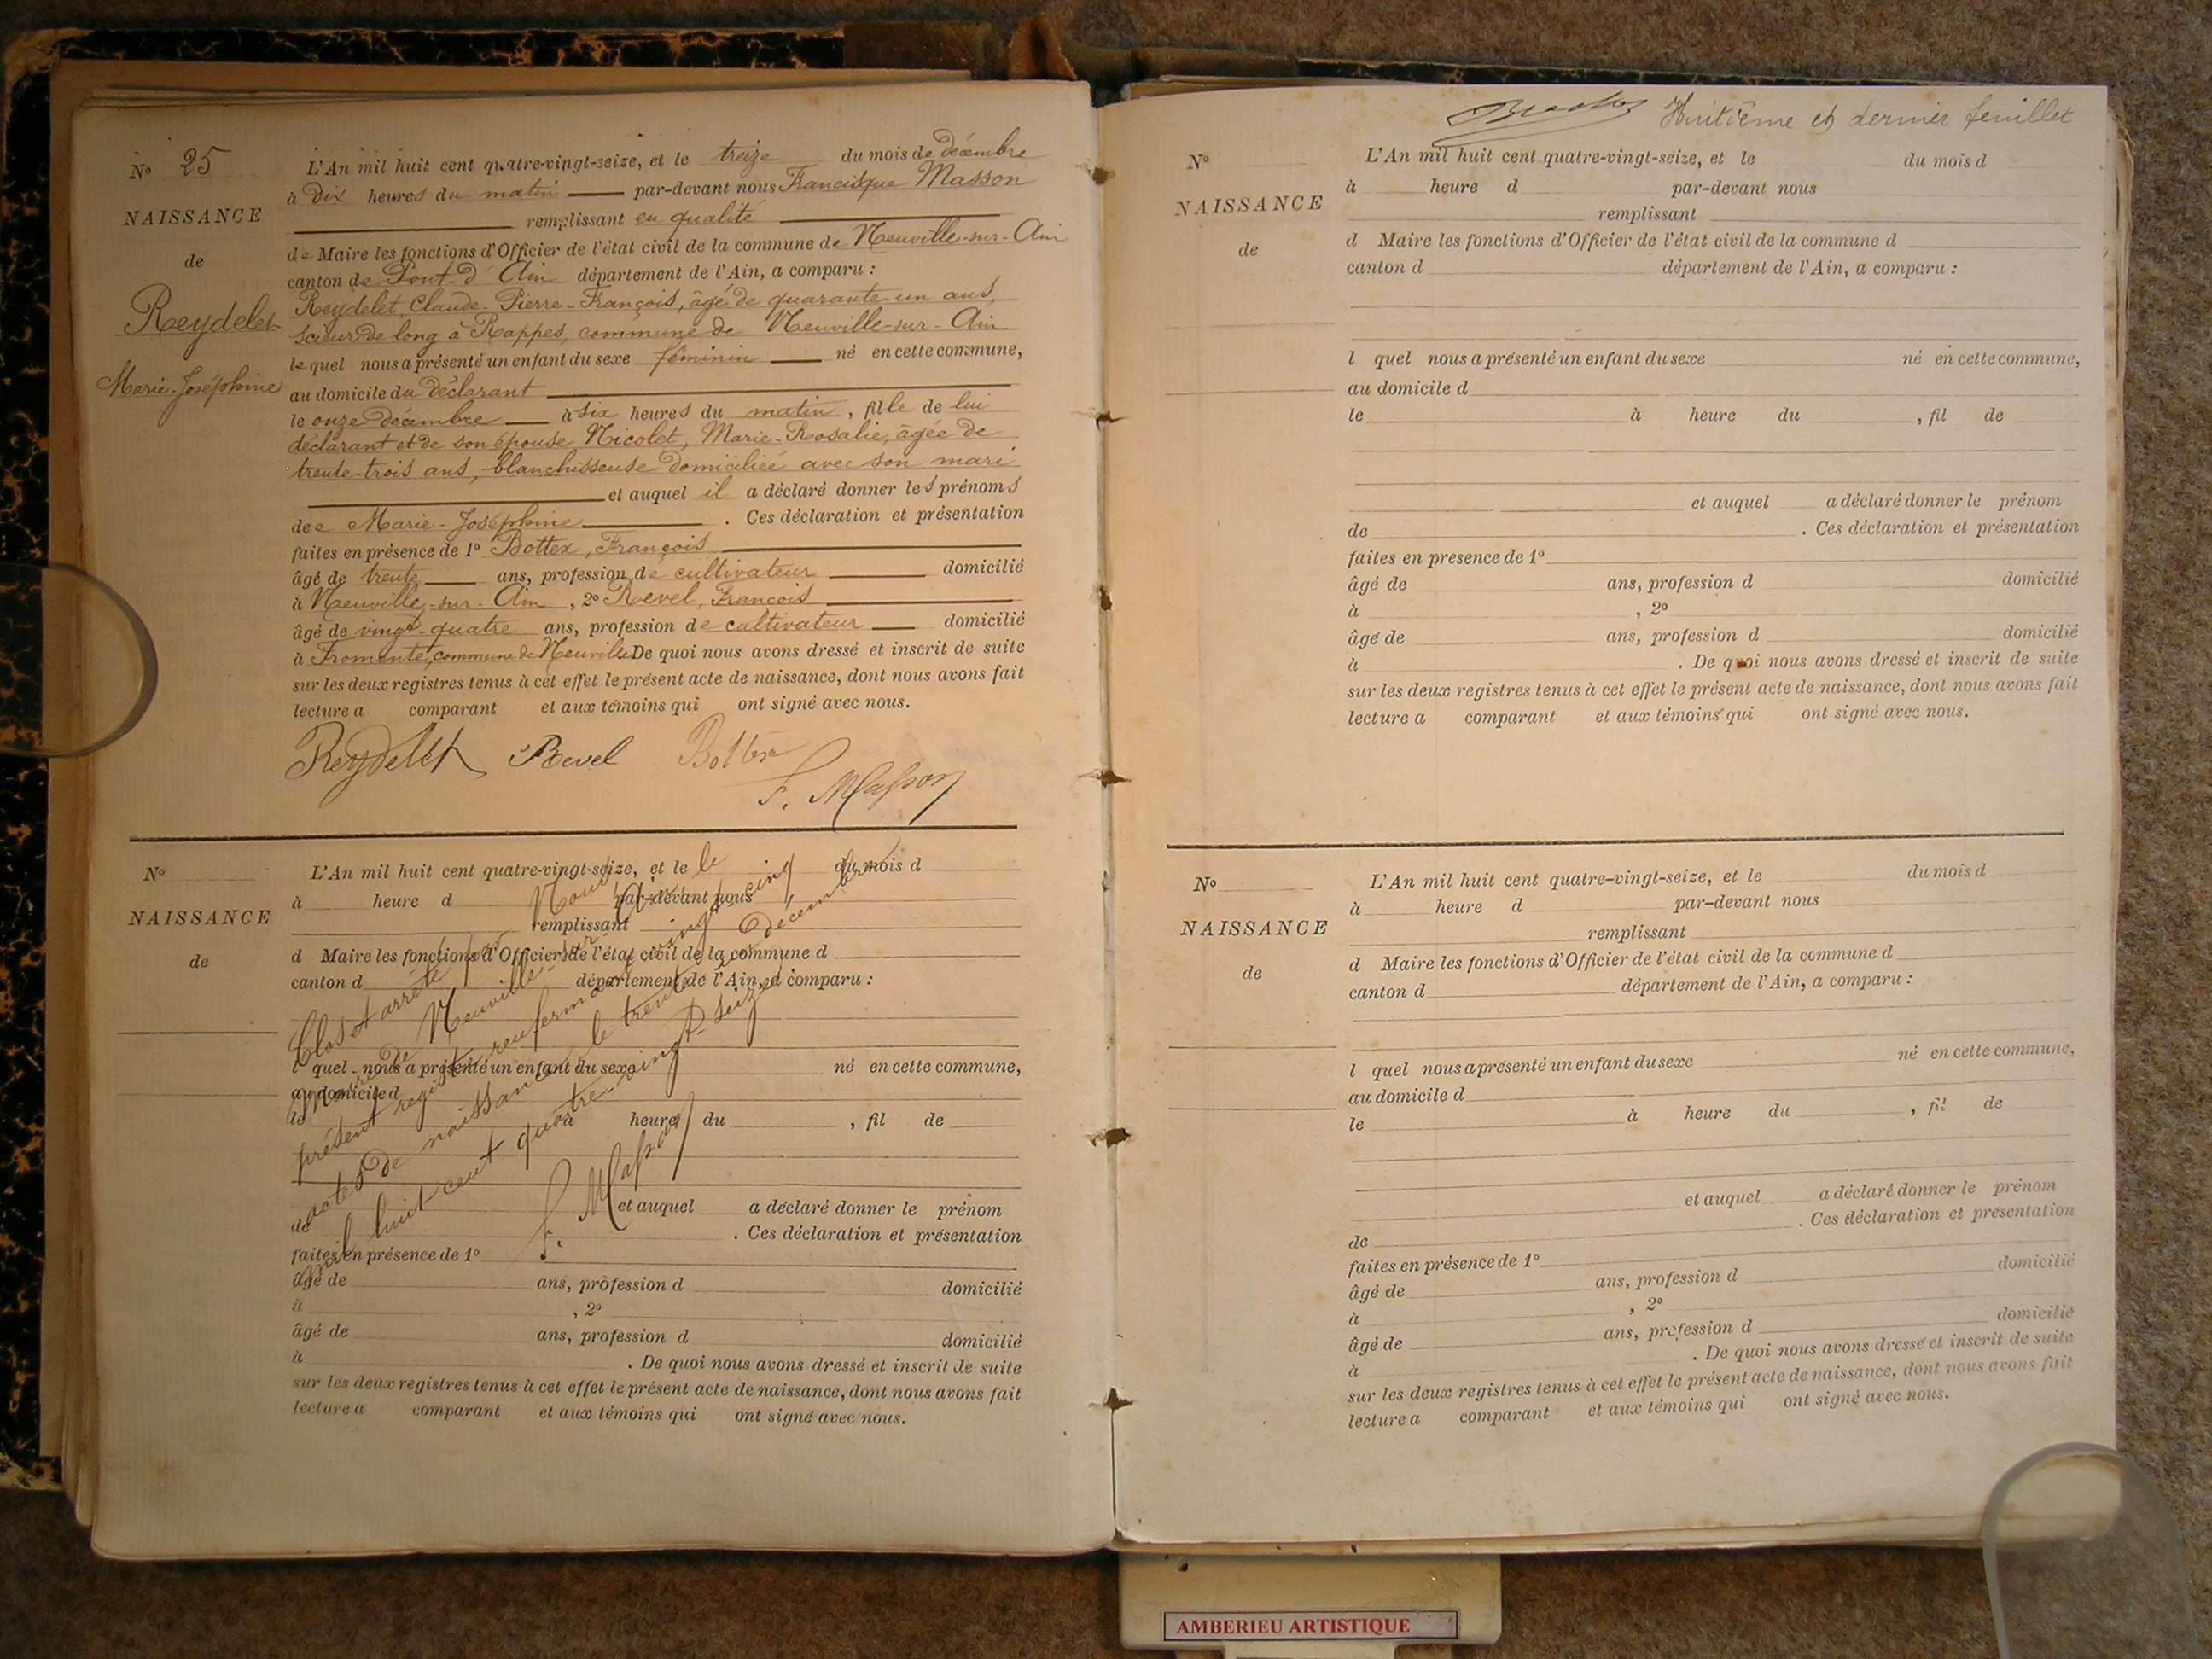 N° 25
NAISSANCE
de
Reydelet
Marie-Joséphine
L'An mil huit cent quatre-vingt-seize, et le treize du mois de Décembre
à Dix heures du matin par-devant nous Francisque Masson
remplissant en qualité
de Maire les fonctions d'Officier de l'état civil de la commune de Neuville-sur-Ain
canton de Pont-d'Ain département de l'Ain, a comparu :
Reydelet Claude-Pierre-François, âgé de quarante-un ans,
scieur de long à Rappes, commune de Neuville-sur-Ain
lequel nous a présenté un enfant du sexe féminin né en cette commune,
au domicile du Déclarant
le onze Décembre à six heures du matin, fille de lui
déclarant et de son épouse Nicolet, Marie-Rosalie, âgée de
trente-trois ans, blanchisseuse domiciliée avec son mari
et auquel il a déclaré donner les prénoms
de Marie-Joséphine. Ces déclaration et présentation
faites en présence de 1° Bottex, François
âgé de trente ans, profession de cultivateur domicilié
à Neuville-sur-Ain, 2° Revel, François
âgé de vingt-quatre ans, profession de cultivateur domicilié
à Fromente, commune de Neuville De quoi nous avons dressé et inscrit de suite
sur les deux registres tenus à cet effet le présent acte de naissance, dont nous avons fait
lecture a comparant et aux témoins qui ont signé avec nous.
Reydelet Revel Bottex
F. Masson
N°
NAISSANCE
de
L'An mil huit cent quatre-vingt-seize, et le du mois d
à heure d par-devant nous
remplissant
d Maire les fonctions d'Officier de l'état civil de la commune d
canton d département de l'Ain, a comparu :
l quel nous a présenté un enfant du sexe né en cette commune,
au domicile d
le à heure du , fil de
et auquel a déclaré donner le prénom
de . Ces déclaration et présentation
faites en présence de 1°
âgé de ans, profession d domicilié
à , 2°
âgé de ans, profession d domicilié
à . De quoi nous avons dressé et inscrit de suite
sur les deux registres tenus à cet effet le présent acte de naissance, dont nous avons fait
lecture a comparant et aux témoins qui ont signé avec nous.
Clos et arrêté par Nous le
Maire de Neuville-sur-Ain
présent registre renfermant vingt-cinq
actes de naissance le trente Décembre
mil huit cent quatre-vingt-seize
F. Masson
Huitième et dernier feuillet
N°
NAISSANCE
de
L'An mil huit cent quatre-vingt-seize, et le du mois d
à heure d par-devant nous
remplissant
d Maire les fonctions d'Officier de l'état civil de la commune d
canton d département de l'Ain, a comparu :
l quel nous a présenté un enfant du sexe né en cette commune,
au domicile d
le à heure du , fil de
et auquel a déclaré donner le prénom
de . Ces déclaration et présentation
faites en presence de 1°
âgé de ans, profession d domicilié
à , 2°
âgé de ans, profession d domicilié
à . De quoi nous avons dressé et inscrit de suite
sur les deux registres tenus à cet effet le présent acte de naissance, dont nous avons fait
lecture a comparant et aux témoins qui ont signé avec nous.
N°
NAISSANCE
de
L'An mil huit cent quatre-vingt-seize, et le du mois d
à heure d par-devant nous
remplissant
d Maire les fonctions d'Officier de l'état civil de la commune d
canton d département de l'Ain, a comparu :
l quel nous a présenté un enfant du sexe né en cette commune,
au domicile d
le à heure du , fil de
et auquel a déclaré donner le prénom
de . Ces déclaration et présentation
faites en présence de 1°
âgé de ans, profession d domicilié
à , 2°
âgé de ans, profession d domicilié
à . De quoi nous avons dressé et inscrit de suite
sur les deux registres tenus à cet effet le présent acte de naissance, dont nous avons fait
lecture a comparant et aux témoins qui ont signé avec nous.
AMBERIEU ARTISTIQUE